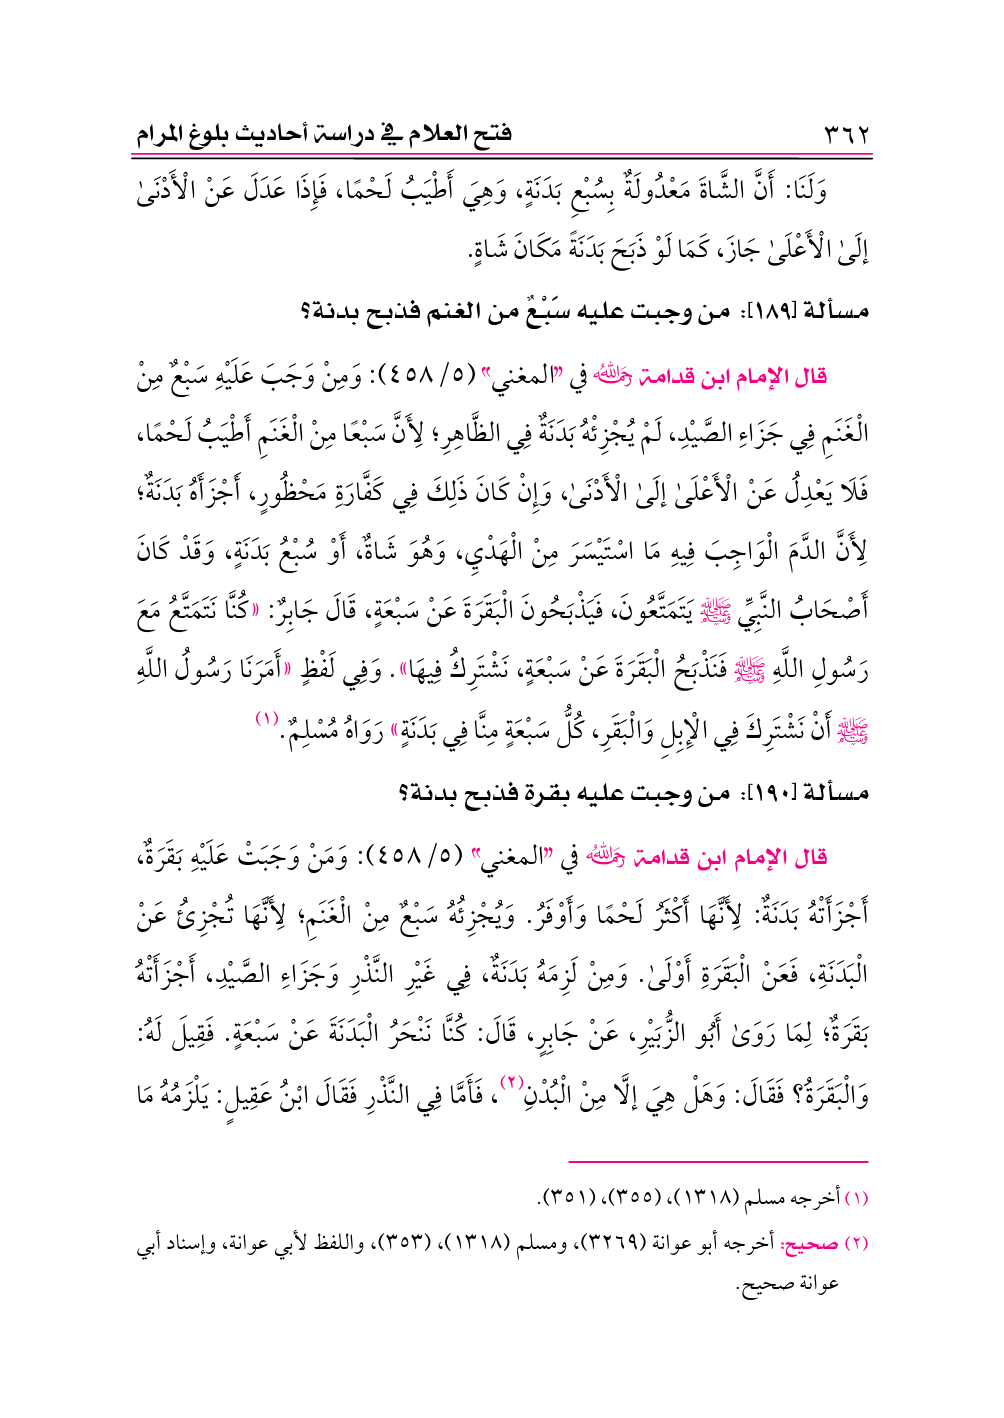 ٣٦٢ فتح العلام في دراسة أحاديث بلوغ المرام
وَلَنَا: أَنَّ الشَّاةَ مَعْدُولَةٌ بِسُبْعِ بَدَنَةٍ، وَهِيَ أَطْيَبُ لَحْمًا، فَإِذَا عَدَلَ عَنْ الْأَدْنَىٰ
إلَىٰ الْأَعْلَىٰ جَازَ، كَمَا لَوْ ذَبَحَ بَدَنَةً مَكَانَ شَاةٍ.
مسألة [١٨٩]: من وجبت عليه سَبْعٌ من الغنم فذبح بدنة؟
قال الإمام ابن قدامة رحمه الله في "المغني" (٥/ ٤٥٨): وَمِنْ وَجَبَ عَلَيْهِ سَبْعٌ مِنْ
الْغَنَمِ فِي جَزَاءِ الصَّيْدِ، لَمْ يُجْزِئْهُ بَدَنَةٌ فِي الظَّاهِرِ؛ لِأَنَّ سَبْعًا مِنْ الْغَنَمِ أَطْيَبُ لَحْمًا،
فَلَا يَعْدِلُ عَنْ الْأَعْلَىٰ إلَىٰ الْأَدْنَىٰ، وَإِنْ كَانَ ذَلِكَ فِي كَفَّارَةِ مَحْظُورٍ، أَجْزَأَهُ بَدَنَةٌ؛
لِأَنَّ الدَّمَ الْوَاجِبَ فِيهِ مَا اسْتَيْسَرَ مِنْ الْهَدْيِ، وَهُوَ شَاةٌ، أَوْ سُبْعُ بَدَنَةٍ، وَقَدْ كَانَ
أَصْحَابُ النَّبِيِّ ﷺ يَتَمَتَّعُونَ، فَيَذْبَحُونَ الْبَقَرَةَ عَنْ سَبْعَةٍ، قَالَ جَابِرٌ: «كُنَّا نَتَمَتَّعُ مَعَ
رَسُولِ اللَّهِ ﷺ فَنَذْبَحُ الْبَقَرَةَ عَنْ سَبْعَةٍ، نَشْتَرِكُ فِيهَا». وَفِي لَفْظٍ «أَمَرَنَا رَسُولُ اللَّهِ
ﷺ أَنْ نَشْتَرِكَ فِي الْإِبِلِ وَالْبَقَرِ، كُلُّ سَبْعَةٍ مِنَّا فِي بَدَنَةٍ» رَوَاهُ مُسْلِمٌ.(١)
مسألة [١٩٠]: من وجبت عليه بقرة فذبح بدنة؟
قال الإمام ابن قدامة رحمه الله في "المغني" (٥/ ٤٥٨): وَمَنْ وَجَبَتْ عَلَيْهِ بَقَرَةٌ،
أَجْزَأَتْهُ بَدَنَةٌ: لِأَنَّهَا أَكْثَرُ لَحْمًا وَأَوْفَرُ. وَيُجْزِئُهُ سَبْعٌ مِنْ الْغَنَمِ؛ لِأَنَّهَا تُجْزِئُ عَنْ
الْبَدَنَةِ، فَعَنْ الْبَقَرَةِ أَوْلَىٰ. وَمِنْ لَزِمَهُ بَدَنَةٌ، فِي غَيْرِ النَّذْرِ وَجَزَاءِ الصَّيْدِ، أَجْزَأَتْهُ
بَقَرَةٌ؛ لِمَا رَوَىٰ أَبُو الزُّبَيْرِ، عَنْ جَابِرٍ، قَالَ: كُنَّا نَنْحَرُ الْبَدَنَةَ عَنْ سَبْعَةٍ. فَقِيلَ لَهُ:
وَالْبَقَرَةُ؟ فَقَالَ: وَهَلْ هِيَ إلَّا مِنْ الْبُدْنِ(٢)، فَأَمَّا فِي النَّذْرِ فَقَالَ ابْنُ عَقِيلٍ: يَلْزَمُهُ مَا
(١) أخرجه مسلم (١٣١٨)، (٣٥٥)، (٣٥١).
(٢) صحيح: أخرجه أبو عوانة (٣٢٦٩)، ومسلم (١٣١٨)، (٣٥٣)، واللفظ لأبي عوانة، وإسناد أبي
عوانة صحيح.